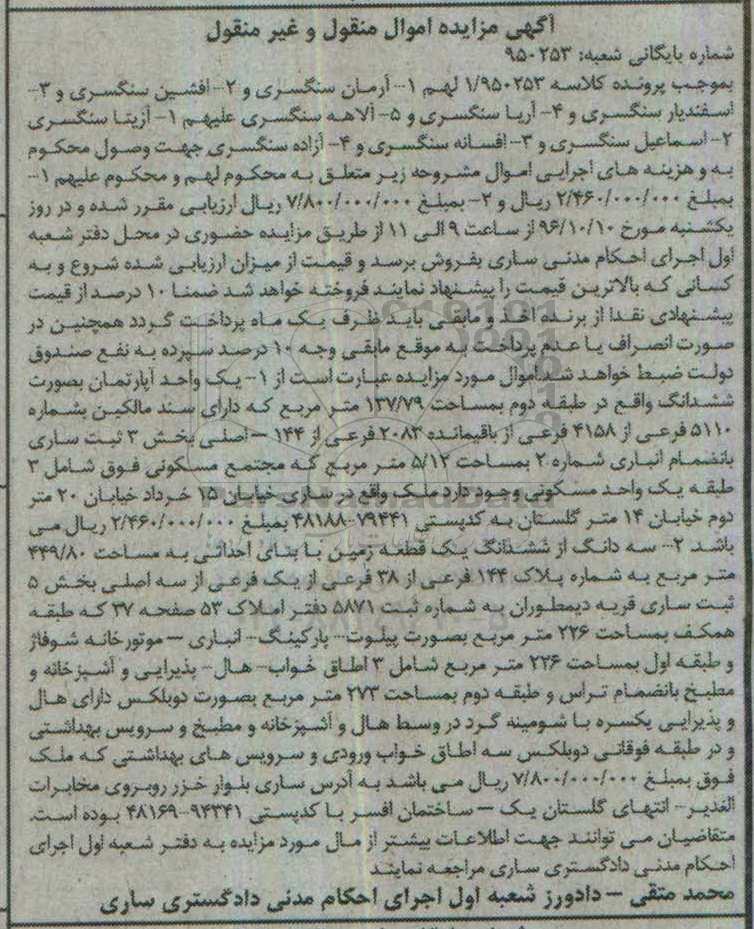 آگهی مزایده اموال منقول و غیر منقول
شماره بایگانی شعبه: ۹۵۰۲۵۳
بموجب پرونده کلاسه ۱/۹۵۰۲۵۳ لهم ۱- آرمان سنگسری و ۲- افشین سنگسری و ۳-
اسفندیار سنگسری و ۴- آریا سنگسری و ۵- آلاهه سنگسری علیهم ۱- آزیتا سنگسری
۲- اسماعیل سنگسری و ۳- افسانه سنگسری و ۴- آزاده سنگسری جهت وصول محکوم
به و هزینه های اجرایی اموال مشروحه زیر متعلق به محکوم لهم و محکوم علیهم ۱-
بمبلغ ۲/۴۶۰/۰۰۰/۰۰۰ ریال و ۲- بمبلغ ۷/۸۰۰/۰۰۰/۰۰۰ ریال ارزیابی مقرر شده و در روز
یکشنبه مورخ ۹۶/۱۰/۱۰ از ساعت ۹ الی ۱۱ از طریق مزایده حضوری در محل دفتر شعبه
اول اجرای احکام مدنی ساری بفروش برسد و قیمت از میزان ارزیابی شده شروع و به
کسانی که بالاترین قیمت را پیشنهاد نمایند فروخته خواهد شد ضمنا ۱۰ درصد از قیمت
پیشنهادی نقدا از برنده اخذ و مابقی باید ظرف یک ماه پرداخت گردد همچنین در
صورت انصراف یا عدم پرداخت به موقع مابقی وجه ۱۰ درصد سپرده به نفع صندوق
دولت ضبط خواهد شد.اموال مورد مزایده عبارت است از ۱- یک واحد آپارتمان بصورت
ششدانگ واقع در طبقه دوم بمساحت ۱۳۷/۷۹ متر مربع که دارای سند مالکین بشماره
۵۱۱۰ فرعی از ۴۱۵۸ فرعی از باقیمانده ۲۰۸۳ فرعی از ۱۴۴ – اصلی بخش ۳ ثبت ساری
بانضمام انباری شماره ۲ بمساحت ۵/۱۲ متر مربع که مجتمع مسکونی فوق شامل ۳
طبقه یک واحد مسکونی وجود دارد ملک واقع در ساری خیابان ۱۵ خرداد خیابان ۲۰ متر
دوم خیابان ۱۴ متر گلستان به کدپستی ۷۹۴۴۱-۴۸۱۸۸ بمبلغ ۲/۴۶۰/۰۰۰/۰۰۰ ریال می
باشد ۲- سه دانگ از ششدانگ یک قطعه زمین با بنای احداثی به مساحت ۴۴۹/۸۰
متر مربع به شماره پلاک ۱۴۴ فرعی از ۳۸ فرعی از یک فرعی از سه اصلی بخش ۵
ثبت ساری قریه دیمطوران به شماره ثبت ۵۸۷۱ دفتر املاک ۵۳ صفحه ۳۷ که طبقه
همکف بمساحت ۲۲۶ متر مربع بصورت پیلوت- پارکینگ- انباری – موتورخانه شوفاژ
و طبقه اول بمساحت ۲۲۶ متر مربع شامل ۳ اطاق خواب- هال- پذیرایی و آشپزخانه و
مطبخ بانضمام تراس و طبقه دوم بمساحت ۲۷۳ متر مربع بصورت دوبلکس دارای هال
و پذیرایی یکسره با شومینه گرد در وسط هال و آشپزخانه و مطبخ و سرویس بهداشتی
و در طبقه فوقانی دوبلکس سه اطاق خواب ورودی و سرویس های بهداشتی که ملک
فوق بمبلغ ۷/۸۰۰/۰۰۰/۰۰۰ ریال می باشد به آدرس ساری بلوار خزر روبروی مخابرات
الغدیر- انتهای گلستان یک – ساختمان افسر با کدپستی ۹۴۳۴۱-۴۸۱۶۹ بوده است.
متقاضیان می توانند جهت اطلاعات بیشتر از مال مورد مزایده به دفتر شعبه اول اجرای
احکام مدنی دادگستری ساری مراجعه نمایند
محمد متقی – دادورز شعبه اول اجرای احکام مدنی دادگستری ساری